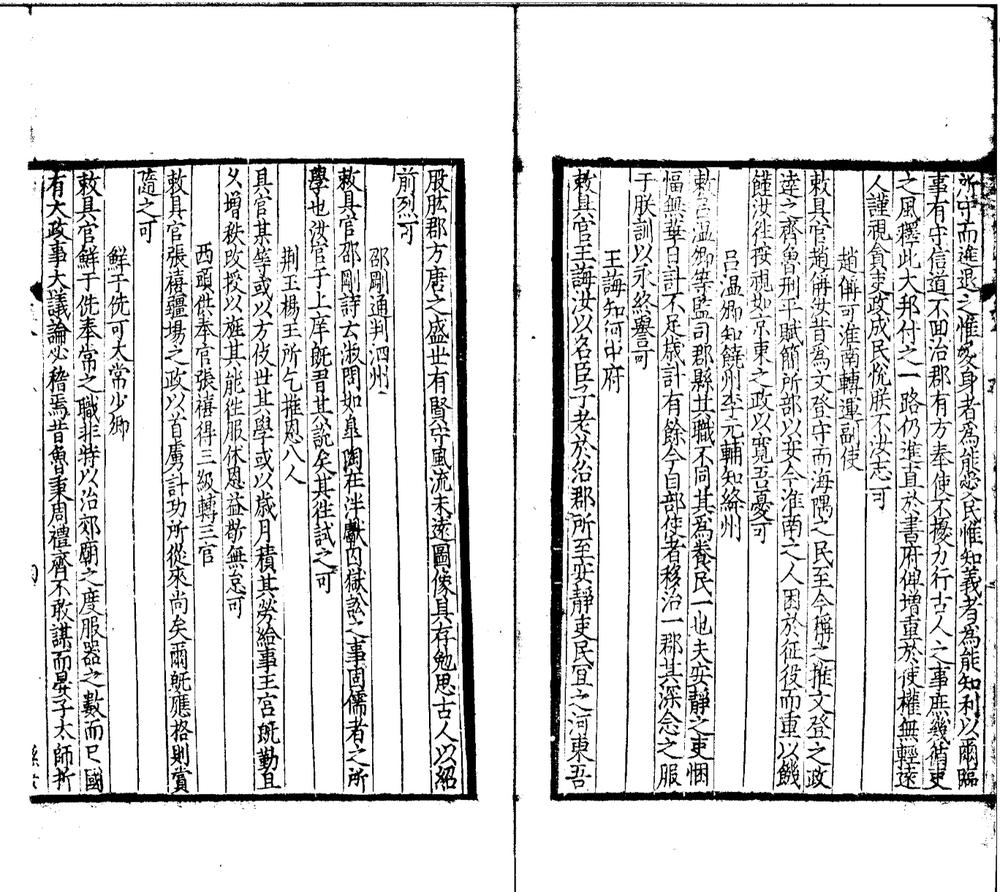 所守而進退之惟愛身者為能愛民惟知義者為能知利以爾臨
事有守信道不回治郡有方奉使不擾力行古人之事庶幾循吏
之風擇此大邦付之一路仍進直於書府俾增重於使權無輕遠
人謹視貪吏政成民悅朕不汝忘可
趙偁可淮南轉運副使
敕具官趙偁汝昔為文登守而海隅之民至今稱之推文登之政
達之齊魯刑平賦簡所部以安今淮南之人困於征役而重以饑
饉汝往按視如京東之政以寬吾憂可
呂溫卿知饒州李元輔知絳州
敕呂溫卿等監司郡縣其職不同其為養民一也夫安靜之吏悃
愊無華日計不足歲計有餘今自部使者移治一郡其深念之服
于朕訓以永終譽可
王誨知河中府
敕具官王誨汝以名臣子老於治郡所至安靜吏民宜之河東吾
股肱郡方唐之盛世有賢守風流未遠圖像具存勉思古人以紹
前烈可
邵剛通判泗州
敕具官邵剛詩云淑問如皐陶在泮獻囚獄訟之事固儒者之所
學也汝官于上庠既習其說矣其往試之可
荆王楊王所乞推恩八人
具官某等或以方伎世其學或以歲月積其勞給事王官既勤且
久增秩改授以旌其能往服休恩益勤無怠可
西頭供奉官張禧得三級轉三官
敕具官張禧疆埸之政以首虜計功所從來尚矣爾既應格則賞
隨之可
鮮于侁可太常少卿
敕具官鮮于侁奉常之職非特以治郊廟之度服器之數而已國
有大政事大議論必稽焉昔魯秉周禮齊不敢謀而晏子太師折